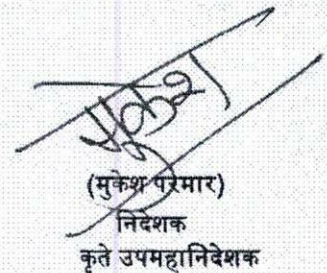 मुकेश
(मुकेश परमार)
निदेशक
कृते उपमहानिदेशक